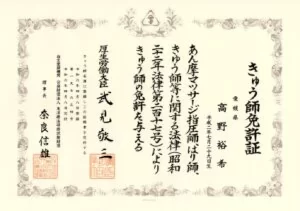 きゅう師免許証
愛媛県
高野裕希
平成二年七月二十九日生
あん摩マツサージ指圧師、はり師、
きゆう師等に関する法律(昭和
二十二年法律第二百十七号)により
きゆう師の免許を与える
厚生労働大臣 武見敬三
理事長 奈良信雄